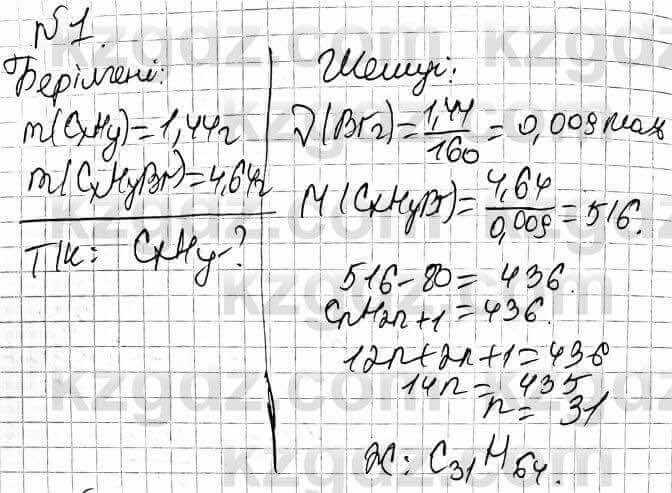 №1.
Берілгені:
m(CxHy)=1,44г
m(CxHyBr)=4,64г
Т/к: CxHy-?
Шешуі:
ν(Br2)=1,44/160=0,009 моль
M(CxHyBr)=4,64/0,009=516.
516-80=436.
CnH2n+1=436.
12n+2n+1=436
14n=435
n=31
Ж: C31H64.
kzgdz.com